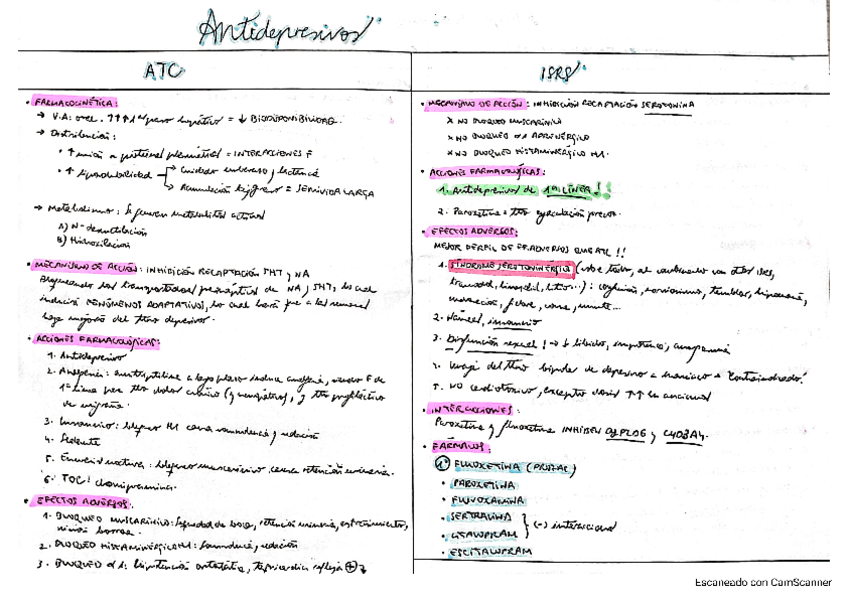 Antidepresivos
ATC
• FARMACOCINÉTICA:
→ V.A: oral. ↑↑↑ 1er paso hepático = ↓ BIODISPONIBILIDAD.
→ Distribución:
• ↑ unión a proteínas plasmáticas = INTERACCIONES F
• ↑ liposolubilidad → Cuidado embarazo y lactancia
→ Acumulación tejido graso = SEMIVIDA LARGA
→ Metabolismo: Se generan metabolitos activos
A) N-desmetilación
B) Hidroxilación
• MECANISMO DE ACCIÓN: INHIBICIÓN RECAPTACIÓN 5HT y NA
Bloqueando los transportadores presinápticos de NA y 5HT, lo cual
inducirá FENÓMENOS ADAPTATIVOS, lo cual hará que a las semanas
haya mejoría del depresivo.
• ACCIONES FARMACOLÓGICAS:
1. Antidepresivo
2. Analgesia: amitriptilina a bajas dosis induce analgesia, F de
1ª línea para tto dolor crónico (y neuropático), y tto profiláctico
de migraña.
3. Insomnio: bloqueo H1 causa somnolencia y sedación
4. Sedante
5. Enuresis nocturna: bloqueo muscarínico causa retención urinaria.
6. TOC! clomipramina.
• EFECTOS ADVERSOS:
1. BLOQUEO MUSCARÍNICO: Sequedad de boca, retención urinaria, estreñimiento,
visión borrosa.
2. BLOQUEO HISTAMINÉRGICO H1: somnolencia, sedación
3. BLOQUEO α1: hipotensión ortostática, taquicardia refleja
ISRS
• MECANISMO DE ACCIÓN: INHIBICIÓN RECAPTACIÓN SEROTONINA
X NO BLOQUEO MUSCARÍNICO
X NO BLOQUEO α1 ADRENÉRGICO
X NO BLOQUEO HISTAMINÉRGICO H1.
• ACCIONES FARMACOLÓGICAS:
1. Antidepresivos de 1ª LÍNEA!!
2. Paroxetina = tto eyaculación precoz.
• EFECTOS ADVERSOS:
MEJOR PERFIL DE EF. ADVERSOS QUE ATC!!
1. SÍNDROME SEROTONINÉRGICO (sobre todo, al combinarlo con otros ISRS,
tramadol, linezolid, litio...): confusión, temblor,
fiebre, coma, muerte...
2. Náuseas, insomnio
3. Disfunción sexual! → ↓ libido, impotencia, anorgasmia
4. bipolar de depresivo a maníaco = Contraindicado!
5. NO cardiotóxico, excepto dosis ↑↑ en ancianos
• INTERACCIONES:
Paroxetina y fluoxetina INHIBEN CYP2D6 y CYP3A4.
• FÁRMACOS:
FLUOXETINA (PROZAC)
• PAROXETINA
• FLUVOXAMINA
• SERTRALINA
• CITALOPRAM
(-) interacciones
• ESCITALOPRAM
Escaneado con CamScanner